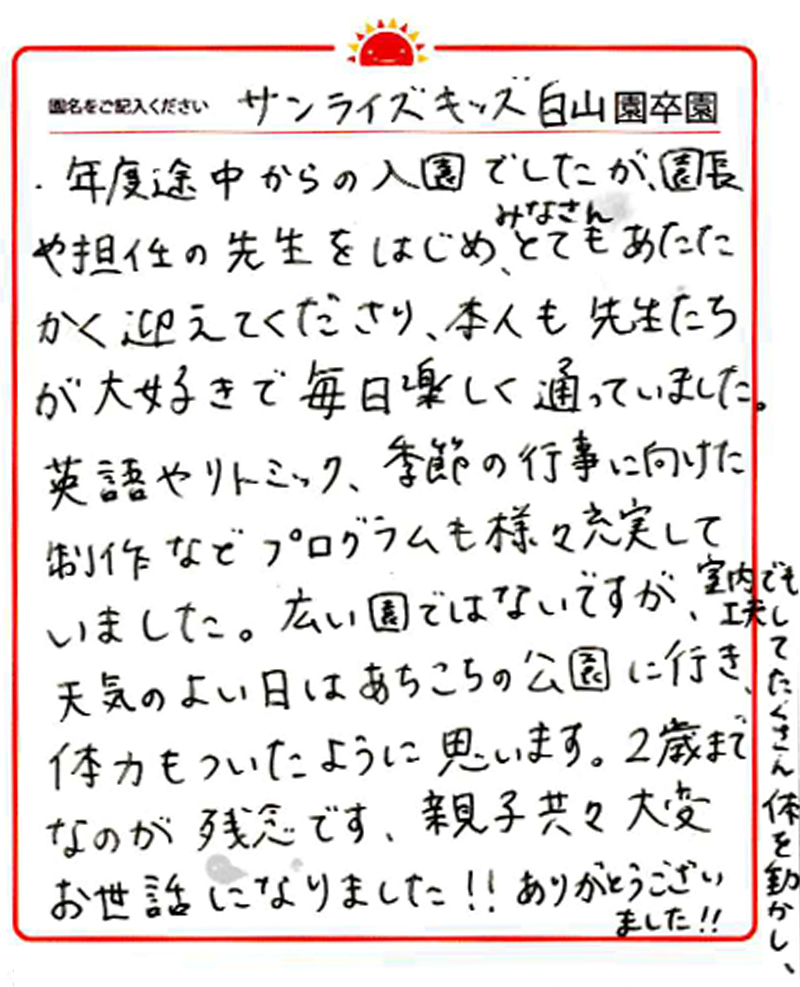 園名をご記入ください サンライズキッズ白山園卒園
・年度途中からの入園でしたが、園長
みなさん
や担任の先生をはじめ、とてもあたた
かく迎えてくださり、本人も先生たち
が大好きで毎日楽しく通っていました。
英語やリトミック、季節の行事に向けた
制作などプログラムも様々充実して
いました。広い園ではないですが、
室内でも
工夫してたくさん体を動かし、
天気のよい日はあちこちの公園に行き、
体力もついたように思います。2歳まで
なのが残念です、親子共々大変
お世話になりました!!ありがとうござい
ました!!